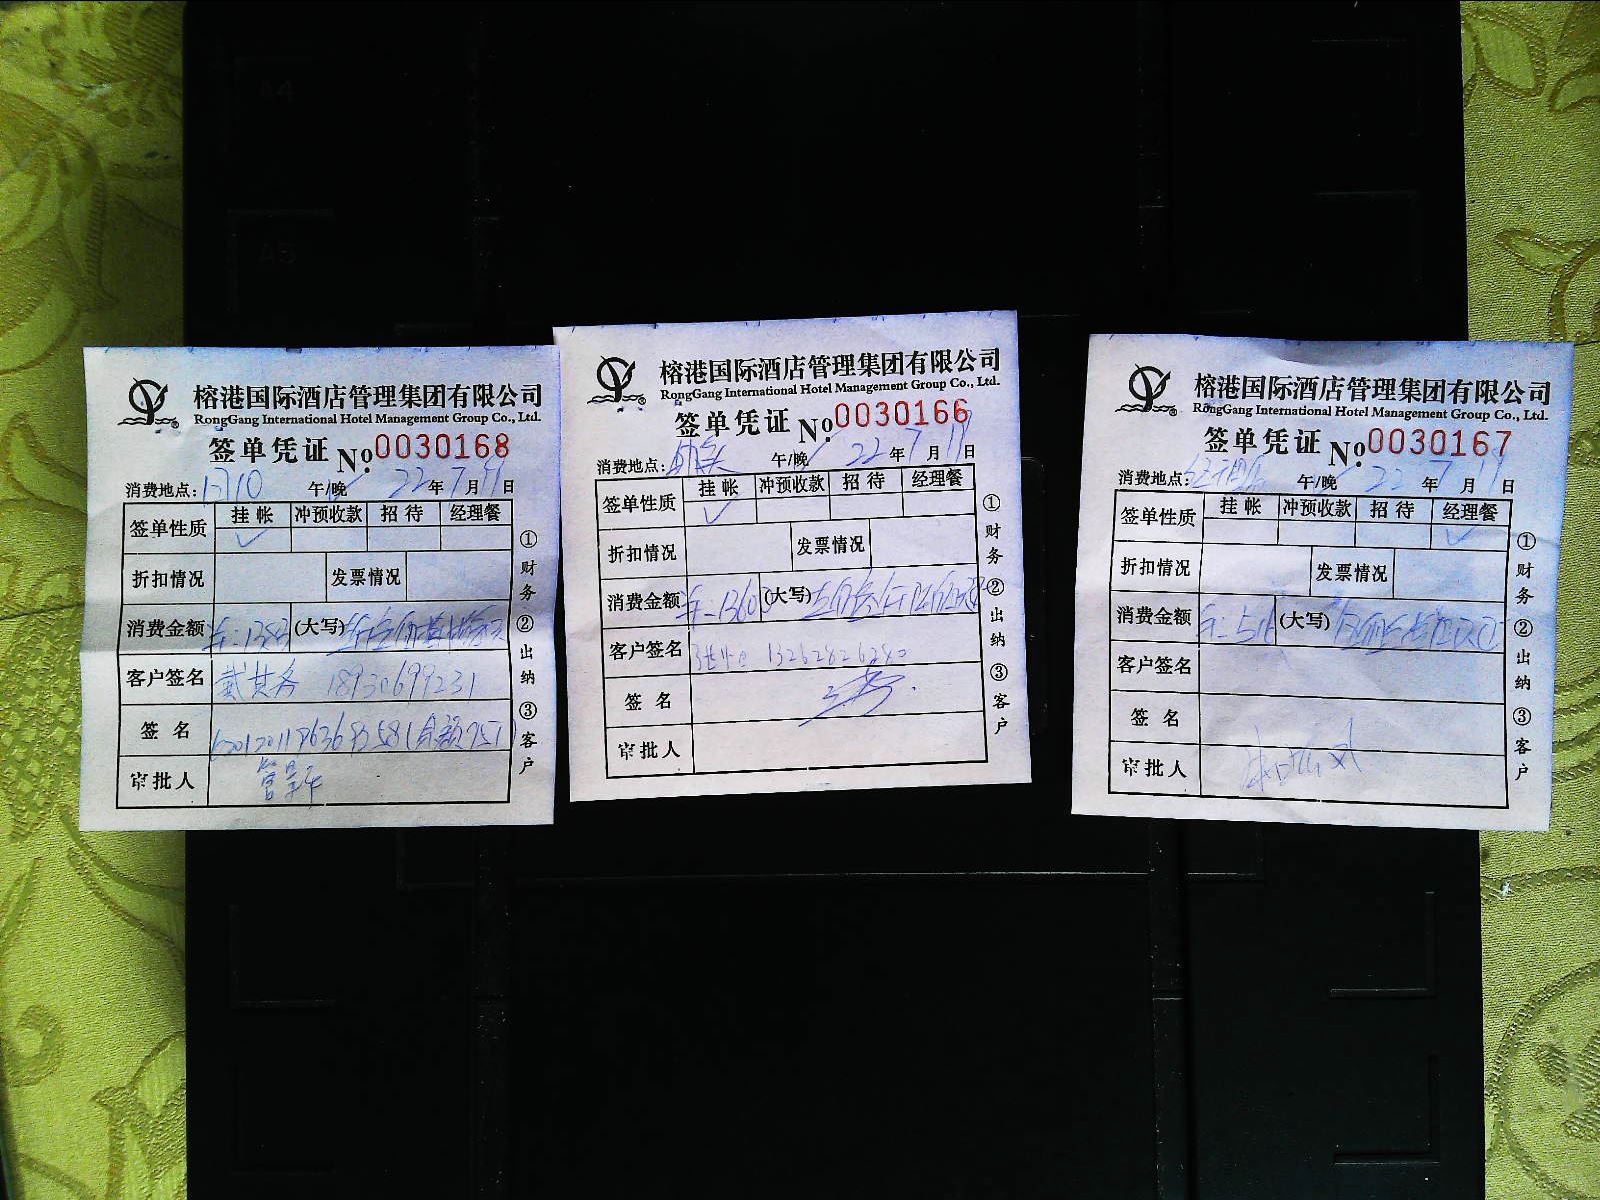 榕港国际酒店管理集团有限公司
RongGang International Hotel Management Group Co., Ltd.
签单凭证 No. 0030168
消费地点: 午/晚 22年7月 日
签单性质 挂帐 冲预收款 招待 经理餐
折扣情况 发票情况
消费金额 1383 (大写)
客户签名 18930699231
签名
审批人
①财务②出纳③客户
榕港国际酒店管理集团有限公司
RongGang International Hotel Management Group Co., Ltd.
签单凭证 No. 0030166
消费地点: 午/晚 22年7月19日
签单性质 挂帐 冲预收款 招待 经理餐
折扣情况 发票情况
消费金额 (大写)
客户签名 13262826280
签名
审批人
①财务②出纳③客户
榕港国际酒店管理集团有限公司
RongGang International Hotel Management Group Co., Ltd.
签单凭证 No. 0030167
消费地点: 午/晚 22年7月19日
签单性质 挂帐 冲预收款 招待 经理餐
折扣情况 发票情况
消费金额 516 (大写)
客户签名
签名
审批人
①财务②出纳③客户